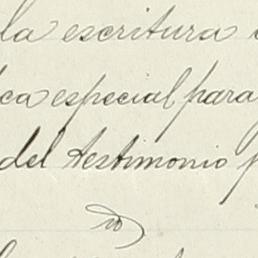 la escritura
ca especial para
del testimonio